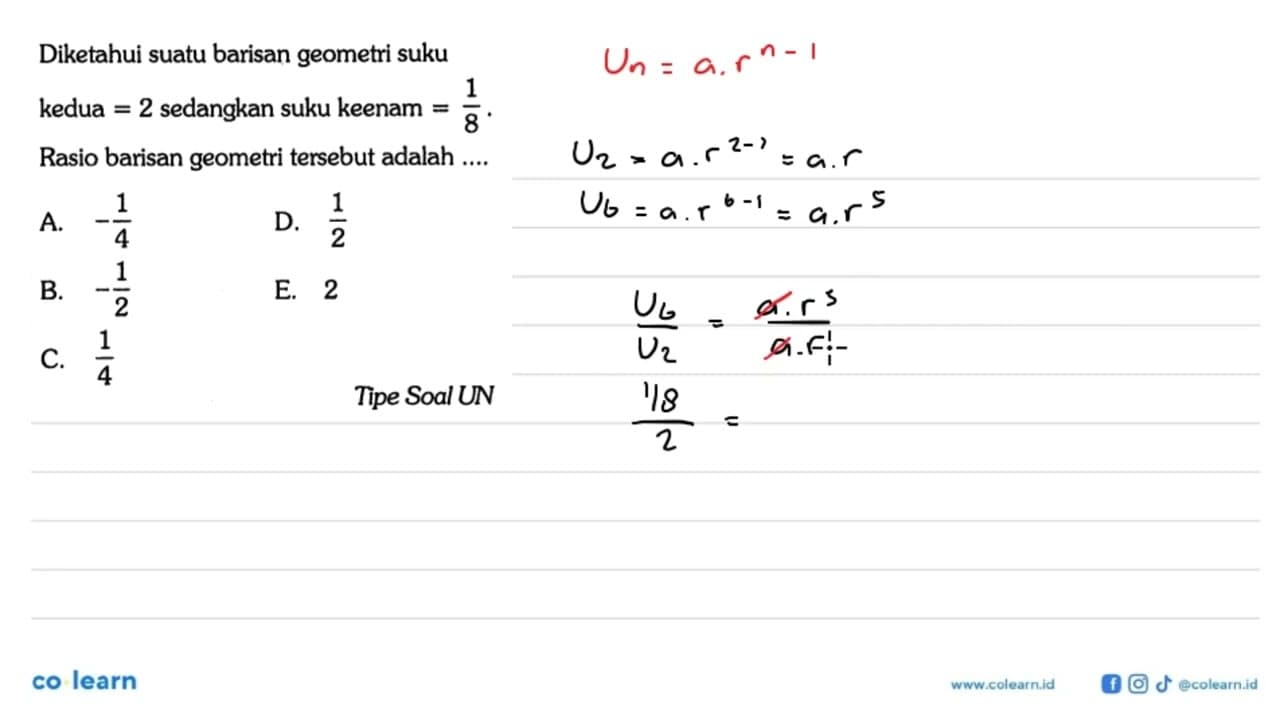 Diketahui suatu barisan geometri suku
kedua = 2 sedangkan suku keenam = 1/8.
Rasio barisan geometri tersebut adalah ....
A. -1/4 D. 1/2
B. -1/2 E. 2
C. 1/4
Tipe Soal UN
Un = a.r^(n-1)
U2 = a.r^(2-1) = a.r
U6 = a.r^(6-1) = a.r^5
U6/U2 = a.r^5/a.r^1
(1/8)/2 =
co learn
www.colearn.id @colearn.id